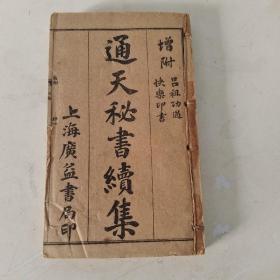 增附
呂祖功過
快樂印書
通天秘書續集
上海廣益書局印